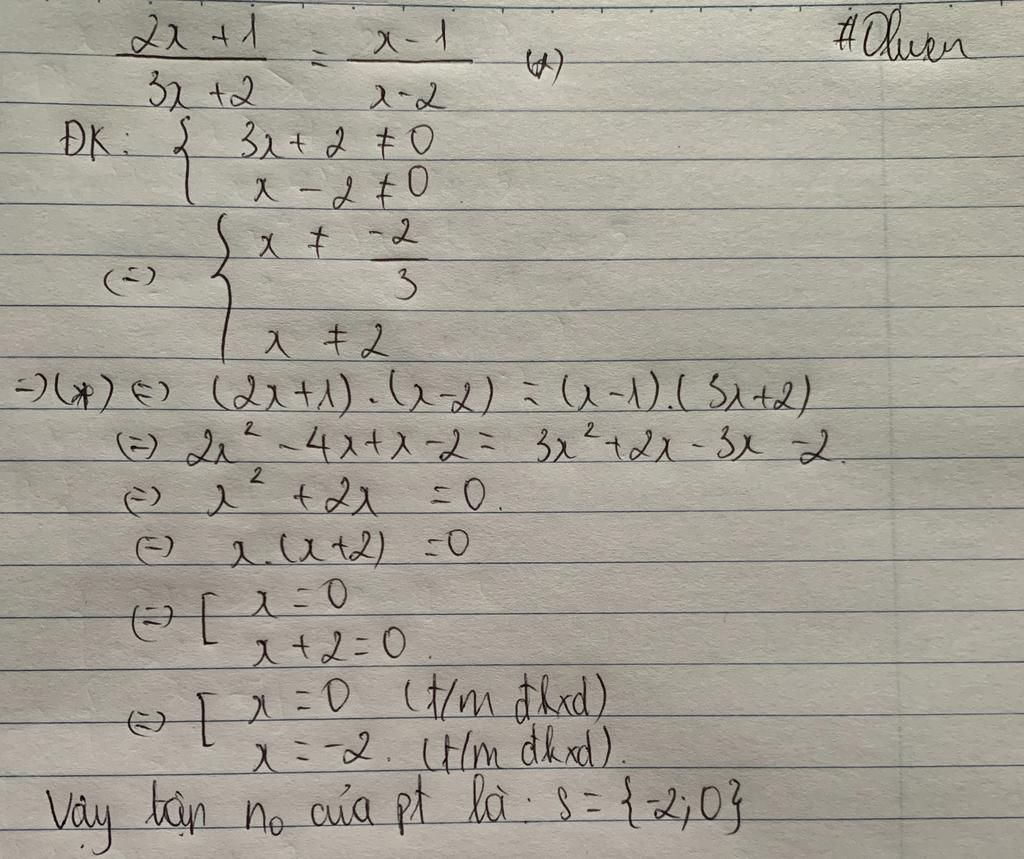 2x + 1 / 3x + 2 = x - 1 / x - 2 (*)
#Oluen
ĐK: { 3x + 2 ≠ 0
x - 2 ≠ 0
(=) { x ≠ -2/3
x ≠ 2
=) (*) (=) (2x+1).(x-2) = (x-1).(3x+2)
(=) 2x² - 4x + x - 2 = 3x² + 2x - 3x - 2.
(=) x² + 2x = 0.
(=) x.(x+2) = 0
(=) [ x = 0
x + 2 = 0.
(=) [ x = 0 (t/m đkxđ)
x = -2. (t/m đkxđ).
Vậy tập no của pt là: S = {-2; 0}